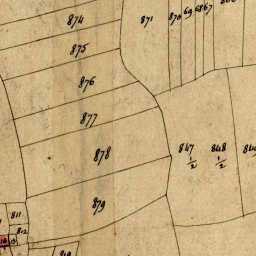 874
871
870
69
68
67
875
876
877
878
847
½
848
½
879
811
812